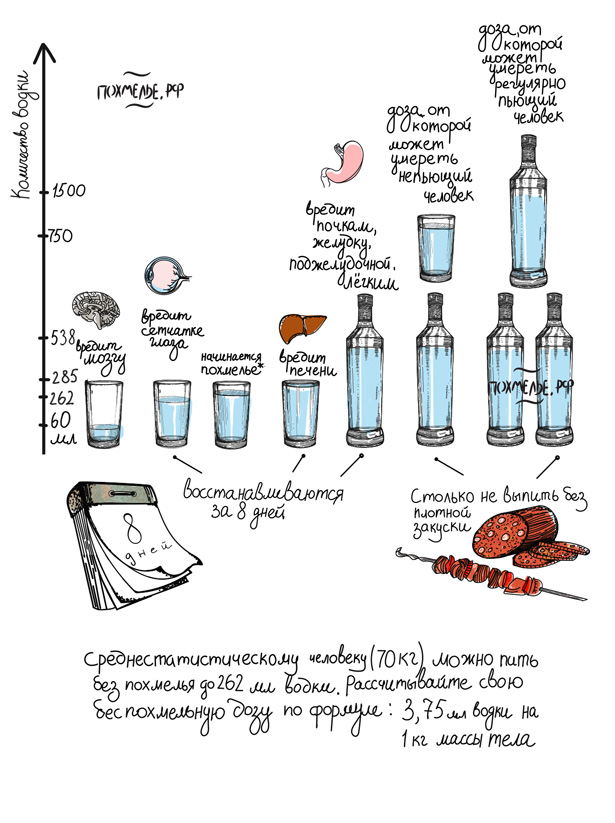 Количество водки
ПОХМЕЛЬЕ.РФ
1500
750
538
285
262
60
мл
вредит
мозгу
вредит
сетчатке
глаза
начинается
похмелье*
вредит
печени
вредит
почкам,
желудку,
поджелудочной,
лёгким
доза, от
которой
может
умереть
непьющий
человек
доза, от
которой
может
умереть
регулярно
пьющий
человек
ПОХМЕЛЬЕ.РФ
восстанавливаются
за 8 дней
8
дней
Столько не выпить без
плотной
закуски
Среднестатистическому человеку (70 кг) можно пить
без похмелья до 262 мл водки. Рассчитывайте свою
беспохмельную дозу по формуле: 3,75 мл водки на
1 кг массы тела